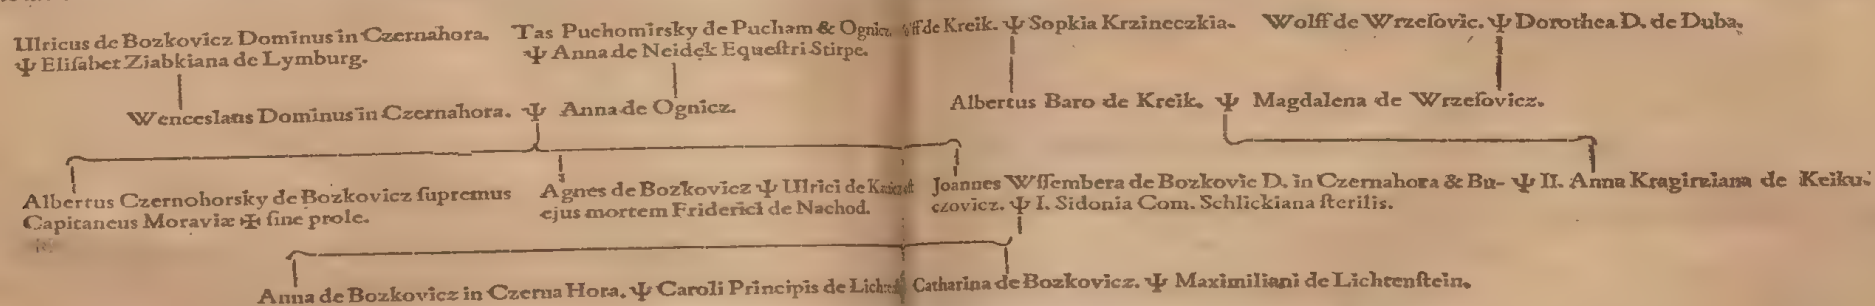 Ulricus de Bozkovicz Dominus in Czernahora.
Ψ Elisabet Ziabkiana de Lymburg.
Tas Puchomirsky de Pucham & Ognicz
Ψ Anna de Neidek Equestri Stirpe.
ff de Kreik. Ψ Sopkia Krzineczkia.
Wolff de Wrzesovic. Ψ Dorothea D. de Duba.
Wenceslaus Dominus in Czernahora. Ψ Anna de Ognicz.
Albertus Baro de Kreik. Ψ Magdalena de Wrzesovicz.
Albertus Czernohorsky de Bozkovicz supremus
Capitaneus Moraviæ ✠ sine prole.
Agnes de Bozkovicz Ψ Ulrici de
ejus mortem Friderici de Nachod.
Joannes Wssembera de Bozkovic D. in Czernahora & Bu- Ψ II. Anna Kragirziana de Keiku.
czovicz. Ψ I. Sidonia Com. Schlickiana sterilis.
Anna de Bozkovicz in Czerna Hora. Ψ Caroli Principis de
Catharina de Bozkovicz. Ψ Maximiliani de Lichtenstein.